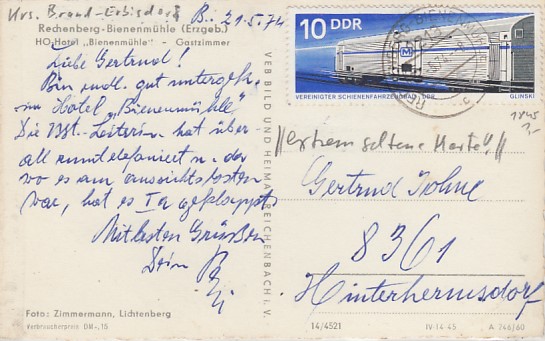 Krs. Brand-Erbisdorf
B., 21.5.74
Rechenberg-Bienenmühle (Erzgeb.)
HO-Hotel „Bienenmühle" - Gastzimmer
Liebe Gertrud!
Bin endl. gut untergek.
im Hotel „Bienenmühle".
Die Bst.-Leiterin hat über
all rumtelefoniert u. da
wo es am aussichtslosesten
war, hat es Ia geklappt.
Mit besten Grüßen
Dein
Foto: Zimmermann, Lichtenberg
Verbraucherpreis DM -,15
VEB BILD UND HEIMAT REICHENBACH I. V.
10 DDR
VEREINIGTER SCHIENENFAHRZEUGBAU DDR
GLINSKI
1845
"extrem seltene Marke",
Gertrud Johne
8361
Hinterhermsdorf
14/4521
IV-14-45
A 746/60